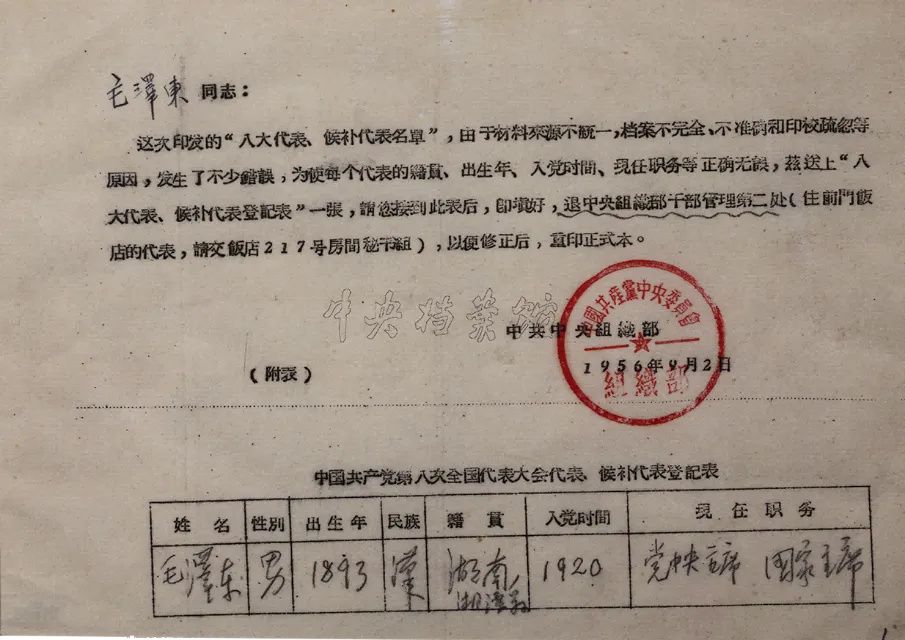 毛澤東 同志：
这次印发的“八大代表、候补代表名單”，由于材料來源不統一，档案不完全、不准确和印校疏忽等
原因，发生了不少錯誤，为使每个代表的籍貫、出生年、入党时間、現任职务等正确无誤，茲送上“八
大代表、候补代表登記表”一張，請您接到此表后，即塡好，退中央組織部干部管理第二处（住前門飯
店的代表，請交飯店217号房間秘干組），以便修正后，重印正式本。
中央档案馆
中共中央組織部
1956年9月2日
中國共産黨中央委員會
組織部
（附表）
中國共产党第八次全国代表大会代表、候补代表登記表
姓名 性別 出生年 民族 籍貫 入党时間 現任职务
毛澤东 男 1893 漢 湖南湘潭縣 1920 党中央主席 国家主席
1